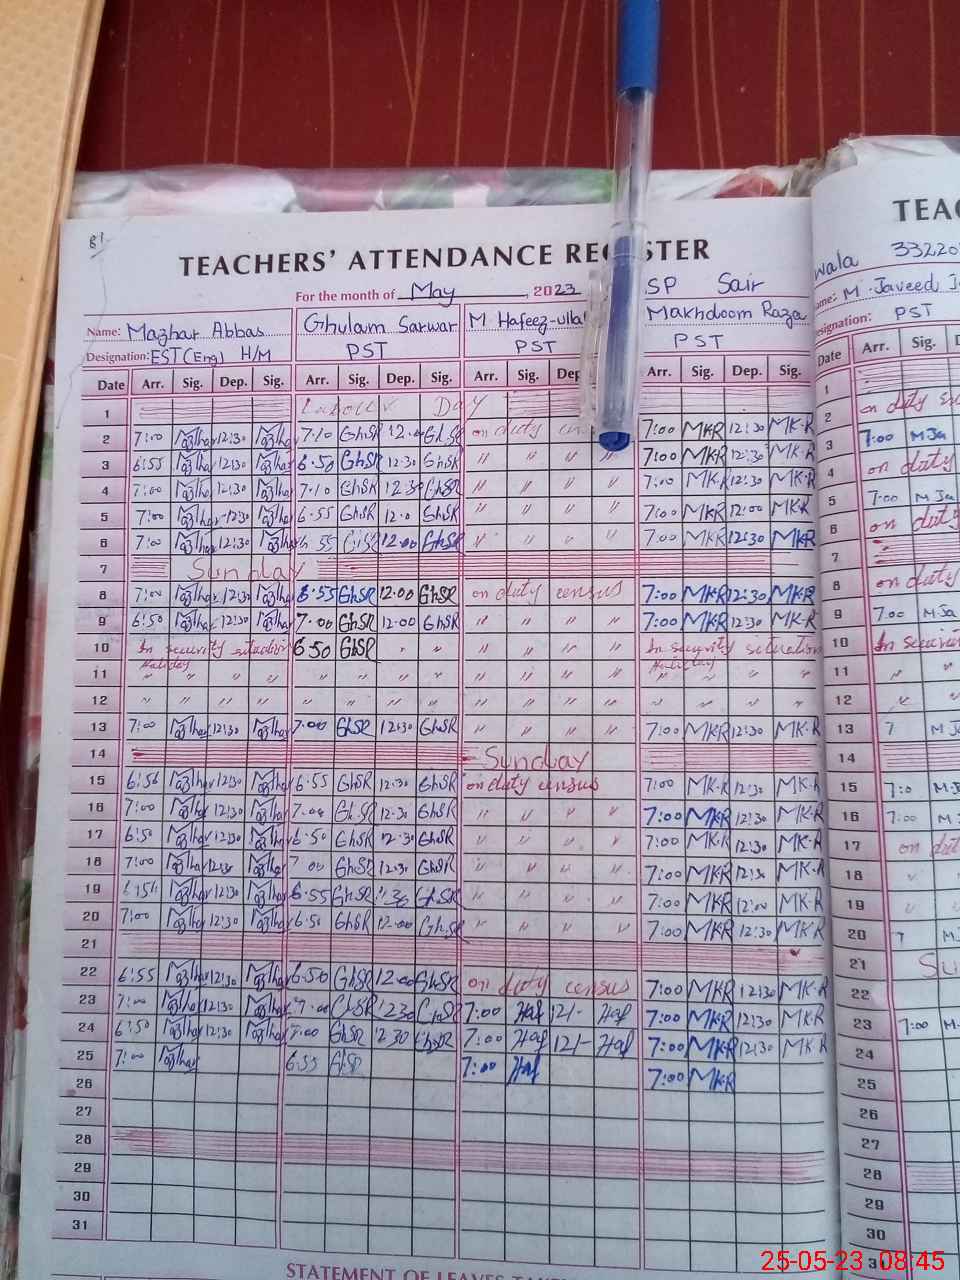 81
TEACHERS' ATTENDANCE RE STER
For the month of May, 2023 SP Sair
Name: Mazhar Abbas Ghulam Sarwar M Hafeez-ullah Makhdoom Raza
Designation: EST (Eng) H/M PST PST PST
Date Arr. Sig. Dep. Sig. Arr. Sig. Dep. Sig. Arr. Sig. Dep Arr. Sig. Dep. Sig.
1 Labour Day
2 7:00 12:30 7.10 GhSR on duty 7:00 MKR 12:30 MK.R
3 6:55 12:30 6.50 GhSR 12.30 GhSR " " " " 7:00 MKR 12:30 MK.R
4 7:00 12:30 7.10 GhSR 12.30 GhSR " " " " 7:00 MK.R 12:30 MK.R
5 7:00 12:30 6.55 GhSR 12.0 GhSR " " " " 7:00 MKR 12:00 MK.R
6 7:00 12:30 55 12.00 GhSR " " " " 7:00 MKR 12:30 MKR
7 Sunday
8 7:00 12:30 6.55 GhSR 12.00 GhSR on duty census 7:00 MKR 12:30 MK.R
9 6:50 12:30 7.00 GhSR 12.00 GhSR " " " " 7:00 MKR 12:30 MK.R
10 In security situation 6 50 GhSR " " " " " " In security situation
11 Holiday " " " " " " " " " " " " Holiday " " "
12 " " " " " " " " " " " " " " " "
13 7:00 12:30 7.00 GhSR 12:30 GhSR " " " " 7:00 MKR 12:30 MK.R
14 Sunday
15 6:56 12:30 6.55 GhSR 12.30 GhSR on duty census 7:00 MK.R 12:30 MK.R
16 7:00 12:30 GhSR 12.30 GhSR " " " " 7:00 MKR 12:30 MK.R
17 6:50 12:30 6.50 GhSR 12.30 GhSR " " " " 7:00 MK.R 12:30 MK.R
18 7:00 12:30 7 00 GhSR 12:30 GhSR " " " " 7:00 MKR MK.R
19 12:30 6.55 GhSR GhSR " " " " 7:00 MKR 12:00 MK.R
20 7:00 12:30 6.50 GhSR 12.00 GhSR " " " " 7:00 MKR 12:30 MKR
21
22 6:55 12:30 6.50 GhSR 12.00 GhSR on duty census 7:00 MKR 12:30 MK.R
23 7:00 12:30 7.00 GhSR 12.30 GhSR 7:00 Haf 12/- Haf 7:00 MKR 12:30 MK.R
24 6:50 12:30 7:00 GhSR 12 30 GhSR 7:00 Haf 12/- Haf 7:00 MK.R 12:30 MK.R
25 7:00 6.55 7:00 Haf 7:00 MKR
26
27
28
29
30
31
STATEMENT OF LEAVES
TEAC
wala 33220
ame: M. Javeed
esignation: PST
Date Arr. Sig. D
1
2 on duty
3 7:00 MJa
4 on duty
5 7:00 MJa
6 on duty
7
8 on duty
9 7.00 MJa
10 In securi
11 "
12 "
13 7 MJ
14
15 7:0
16 7:00 M
17 on dut
18 "
19 " "
20 7 M
21 Su
22
23 7:00 M
24
25
26
27
28
29
30
25-05-23 08:45